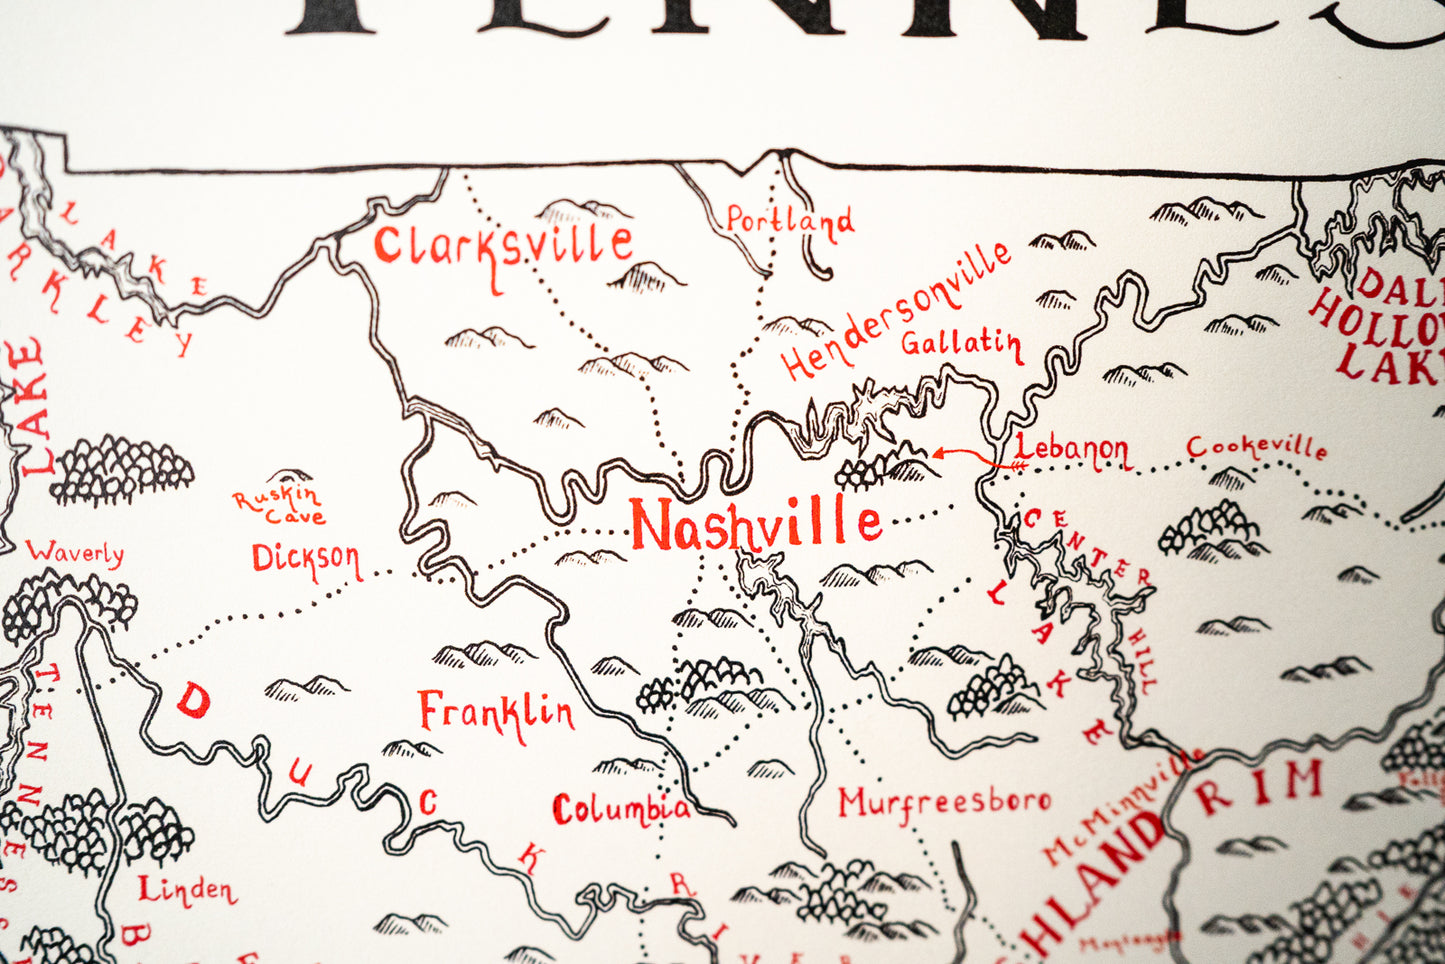 TENNES
LAKE
BARKLEY
Clarksville
Portland
Hendersonville
Gallatin
DALE
HOLLOW
LAKE
LAKE
Lebanon
Cookeville
Ruskin
Cave
Nashville
Waverly
Dickson
CENTER
HILL
LAKE
TENNESS
DUCK RIVER
Franklin
Columbia
Murfreesboro
McMinnville
HLAND RIM
Linden
Monteagle